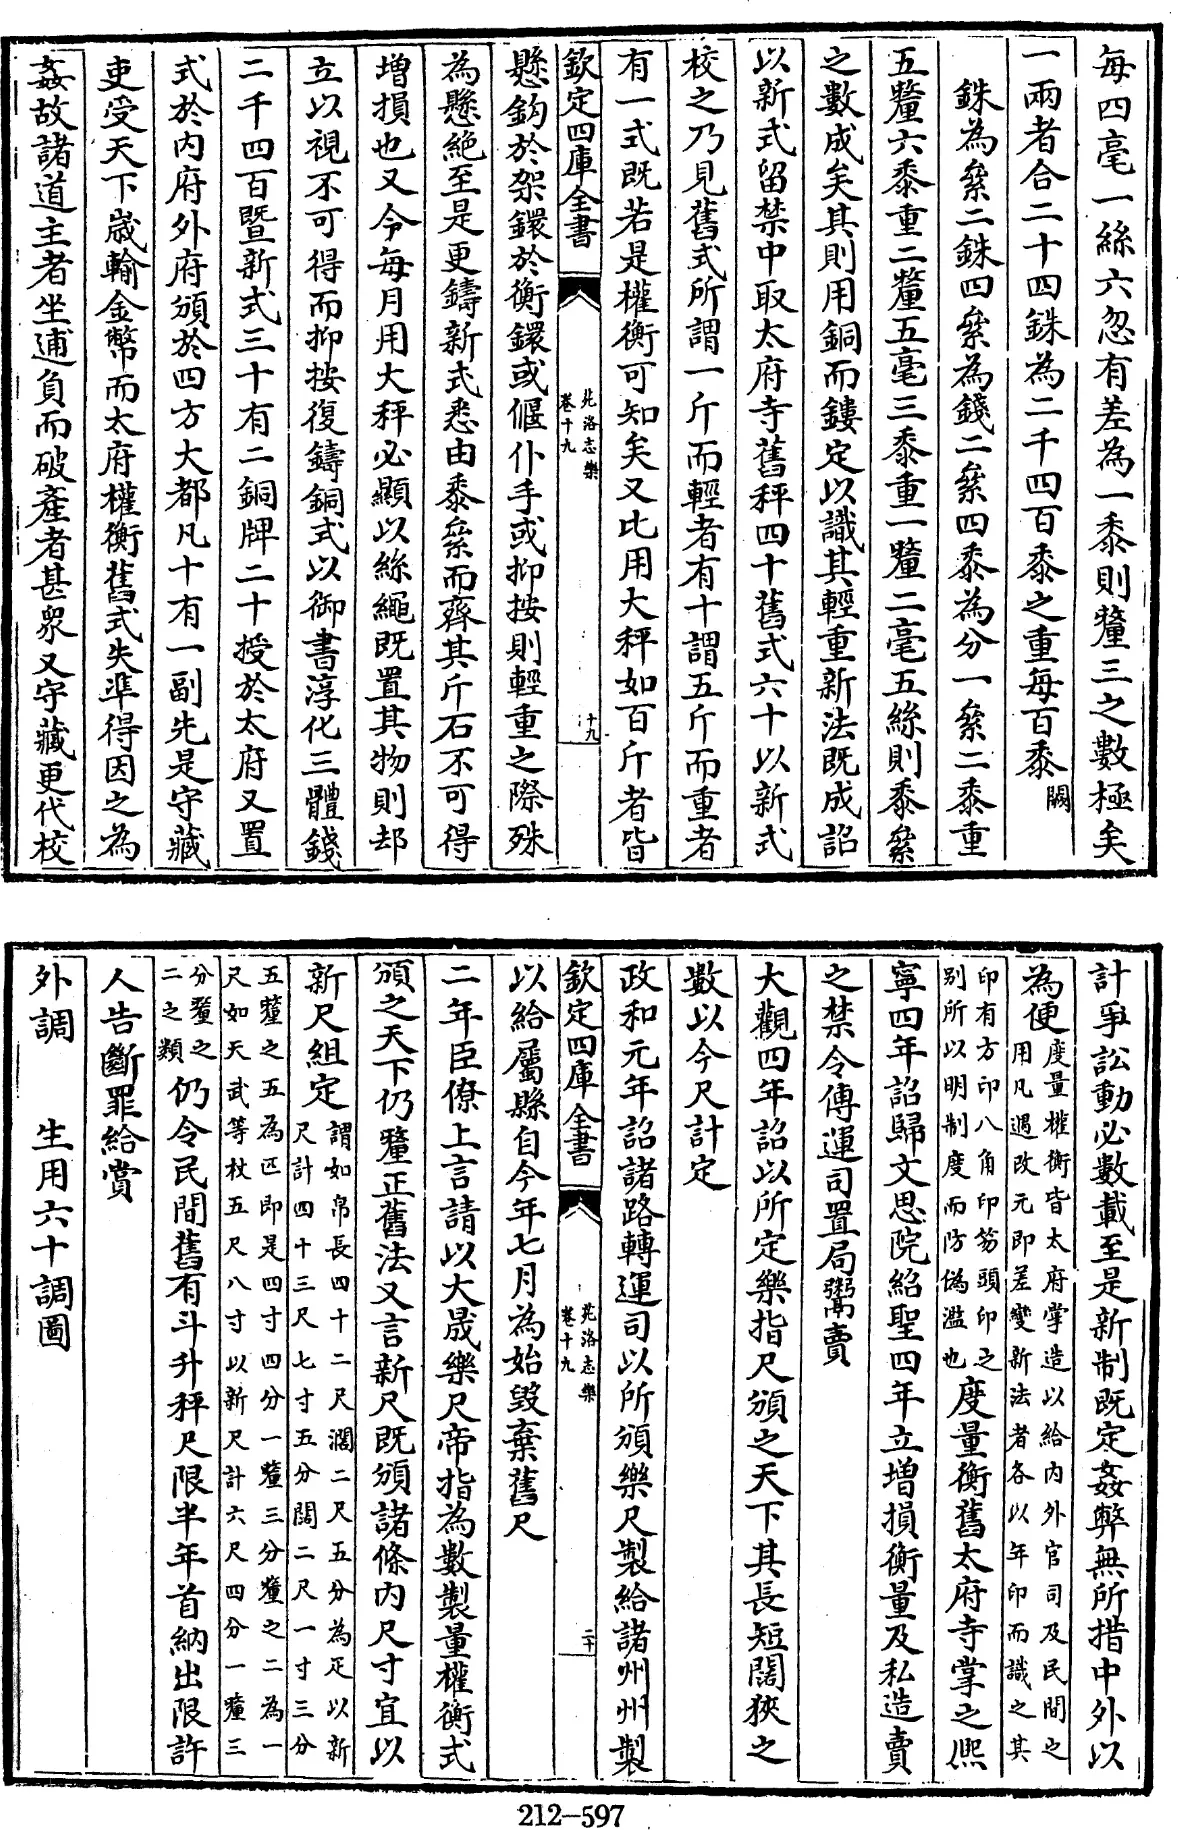 每四毫一絲六忽有差為一黍則釐三之數極矣
一兩者合二十四銖為二千四百黍之重每百黍闕
銖為絫二銖四絫為錢二絫四黍為分一絫二黍重
五釐六黍重二釐五毫三黍重一釐二毫五絲則黍絫
之數成矣其則用銅而鏤定以識其輕重新法既成詔
以新式留禁中取太府寺舊秤四十舊式六十以新式
校之乃見舊式所謂一斤而輕者有十謂五斤而重者
有一式既若是權衡可知矣又比用大秤如百斤者皆
欽定四庫全書
苑洛志樂
卷十九
十九
懸鈎於架鐶於衡鐶或偃仆手或抑按則輕重之際殊
為懸絶至是更鑄新式悉由黍絫而齊其斤石不可得
增損也又令每月用大秤必顯以絲繩既置其物則却
立以視不可得而抑按復鑄銅式以御書淳化三體錢
二千四百暨新式三十有二銅牌二十授於太府又置
式於內府外府頒於四方大都凡十有一副先是守藏
吏受天下嵗輸金幣而太府權衡舊式失準得因之為
姦故諸道主者坐逋負而破產者甚衆又守藏更代校
計爭訟動必數載至是新制既定姦弊無所措中外以
為便度量權衡皆太府掌造以給內外官司及民間之
用凡遇改元即差變新法者各以年印而識之其
印有方印八角印笏頭印之
別所以明制度而防偽濫也度量衡舊太府寺掌之熙
寧四年詔歸文思院紹聖四年立增損衡量及私造賣
之禁令傳運司置局鬻賣
大觀四年詔以所定樂指尺頒之天下其長短闊狹之
數以今尺計定
政和元年詔諸路轉運司以所頒樂尺製給諸州州製
欽定四庫全書
苑洛志樂
卷十九
二十
以給屬縣自今年七月為始毀棄舊尺
二年臣僚上言請以大晟樂尺帝指為數製量權衡式
頒之天下仍釐正舊法又言新尺既頒諸條內尺寸宜以
新尺組定謂如帛長四十二尺濶二尺五分為疋以新
尺計四十三尺七寸五分闊二尺一寸三分
五釐之五為匹即是四寸四分一釐三分釐之二為一
尺如天武等杖五尺八寸以新尺計六尺四分一釐三
分釐之
二之類仍令民間舊有斗升秤尺限半年首納出限許
人告斷罪給賞
外調　生用六十調圖
212-597